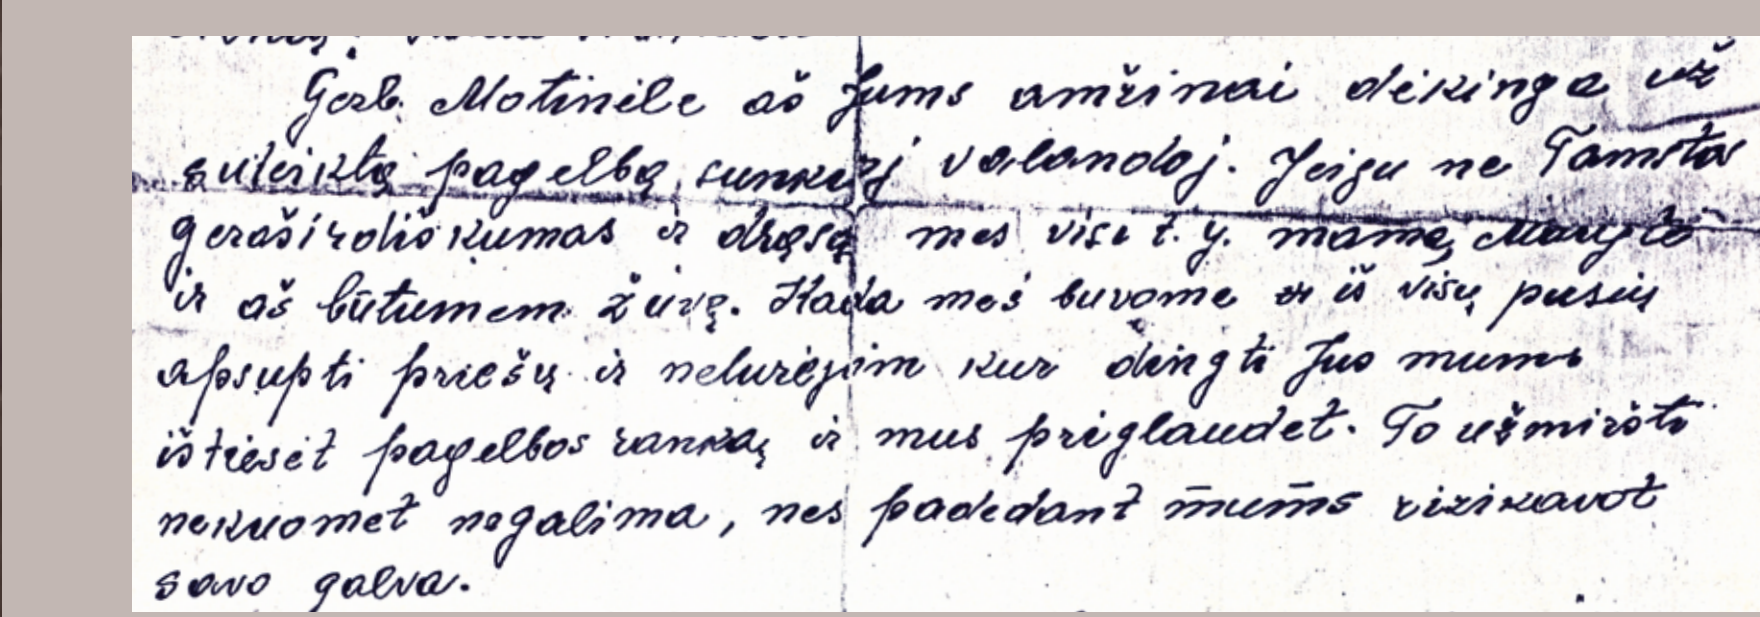 Gerb. Motinėle aš Jums amžinai dėkinga už
suteiktą pagelbą sunkioj valandoj. Jeigu ne Tamstos
geraširdiškumas ir drąsą mes visi t. y. mama,
ir aš būtumem žuvę. Kada mes buvome iš visų pusių
apsupti priešų ir neturėjom kur dingti Jus mums
ištiesėt pagelbos ranką ir mus priglaudėt. To užmiršti
nekuomet negalima, nes padedant mums rizikavot
savo galva.